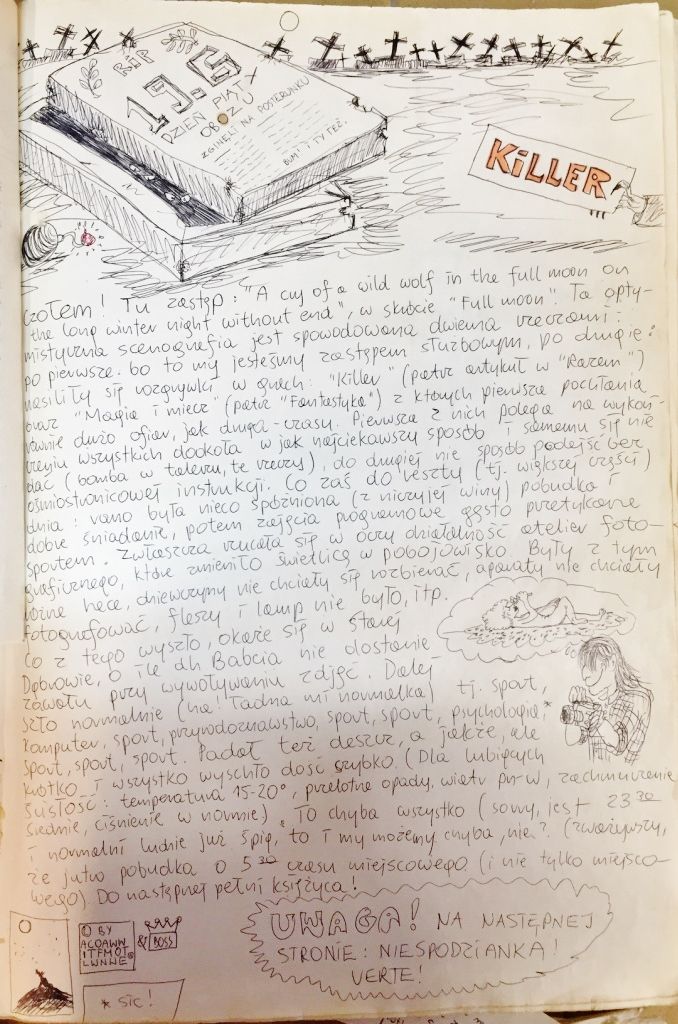 RIP
19.5
DZIEŃ PIĄTY
OBOZU
ZGINĘLI NA POSTERUNKU
BUM! I TY TEŻ.
KiLLER
Czołem! Tu zastęp: "A cry of a wild wolf in the full moon on
the long winter night without end", w skrócie "Full moon". Ta opty-
mistyczna scenografia jest spowodowana dwiema rzeczami:
po pierwsze: bo to my jesteśmy zastępem służbowym, po drugie:
nasiliły się rozgrywki w grach: "Killer" (patrz artykuł w "Razem")
oraz "Magia i miecz" (patrz "Fantastyka") z których pierwsza pochłania
równie dużo ofiar, jak druga - czasu. Pierwsza z nich polega na wykoń-
czeniu wszystkich dookoła w jak najciekawszy sposób i samemu się nie
dać (bomba w talerzu, te rzeczy), do drugiej nie sposób podejść bez
ośmiostronicowej instrukcji. Co zaś do reszty (tj. większej części)
dnia: rano była nieco spóźniona (z niczyjej winy) pobudka i
dobre śniadanie, potem zajęcia programowe gęsto przetykane
sportem. Zwłaszcza rzucała się w oczy działalność atelier foto-
graficznego, które zmieniło świetlicę w pobojowisko. Były z tym
różne hece, dziewczyny nie chciały się rozbierać, aparaty nie chciały
fotografować, fleszy i lamp nie było, itp.
Co z tego wyszło, okaże się w Starej
Dąbrowie, o ile dh Babcia nie dostanie
zawału przy wywoływaniu zdjęć. Dalej
szło normalnie (ha! Ładna mi normalka) tj. sport,
komputer, sport, przyrodoznawstwo, sport, sport, psychologia,*
sport, sport, sport. Padał też deszcz, a jakże, ale
krótko i wszystko wyschło dość szybko. (Dla lubiących
ścisłość: temperatura 15-20°, przelotne opady, wiatr pn-w, zachmurzenie
średnie, ciśnienie w normie.). To chyba wszystko (sorry, jest 23 30
i normalni ludzie już śpią, to i my możemy chyba, nie? (zważywszy,
że jutro pobudka o 5 30 czasu miejscowego (i nie tylko miejsco-
wego). Do następnej pełni księżyca!
© BY
ACOAWW
ITFMOT
LWNWE
& BOSS
* SIC!
UWAGA! NA NASTĘPNEJ
STRONIE: NIESPODZIANKA!
VERTE!